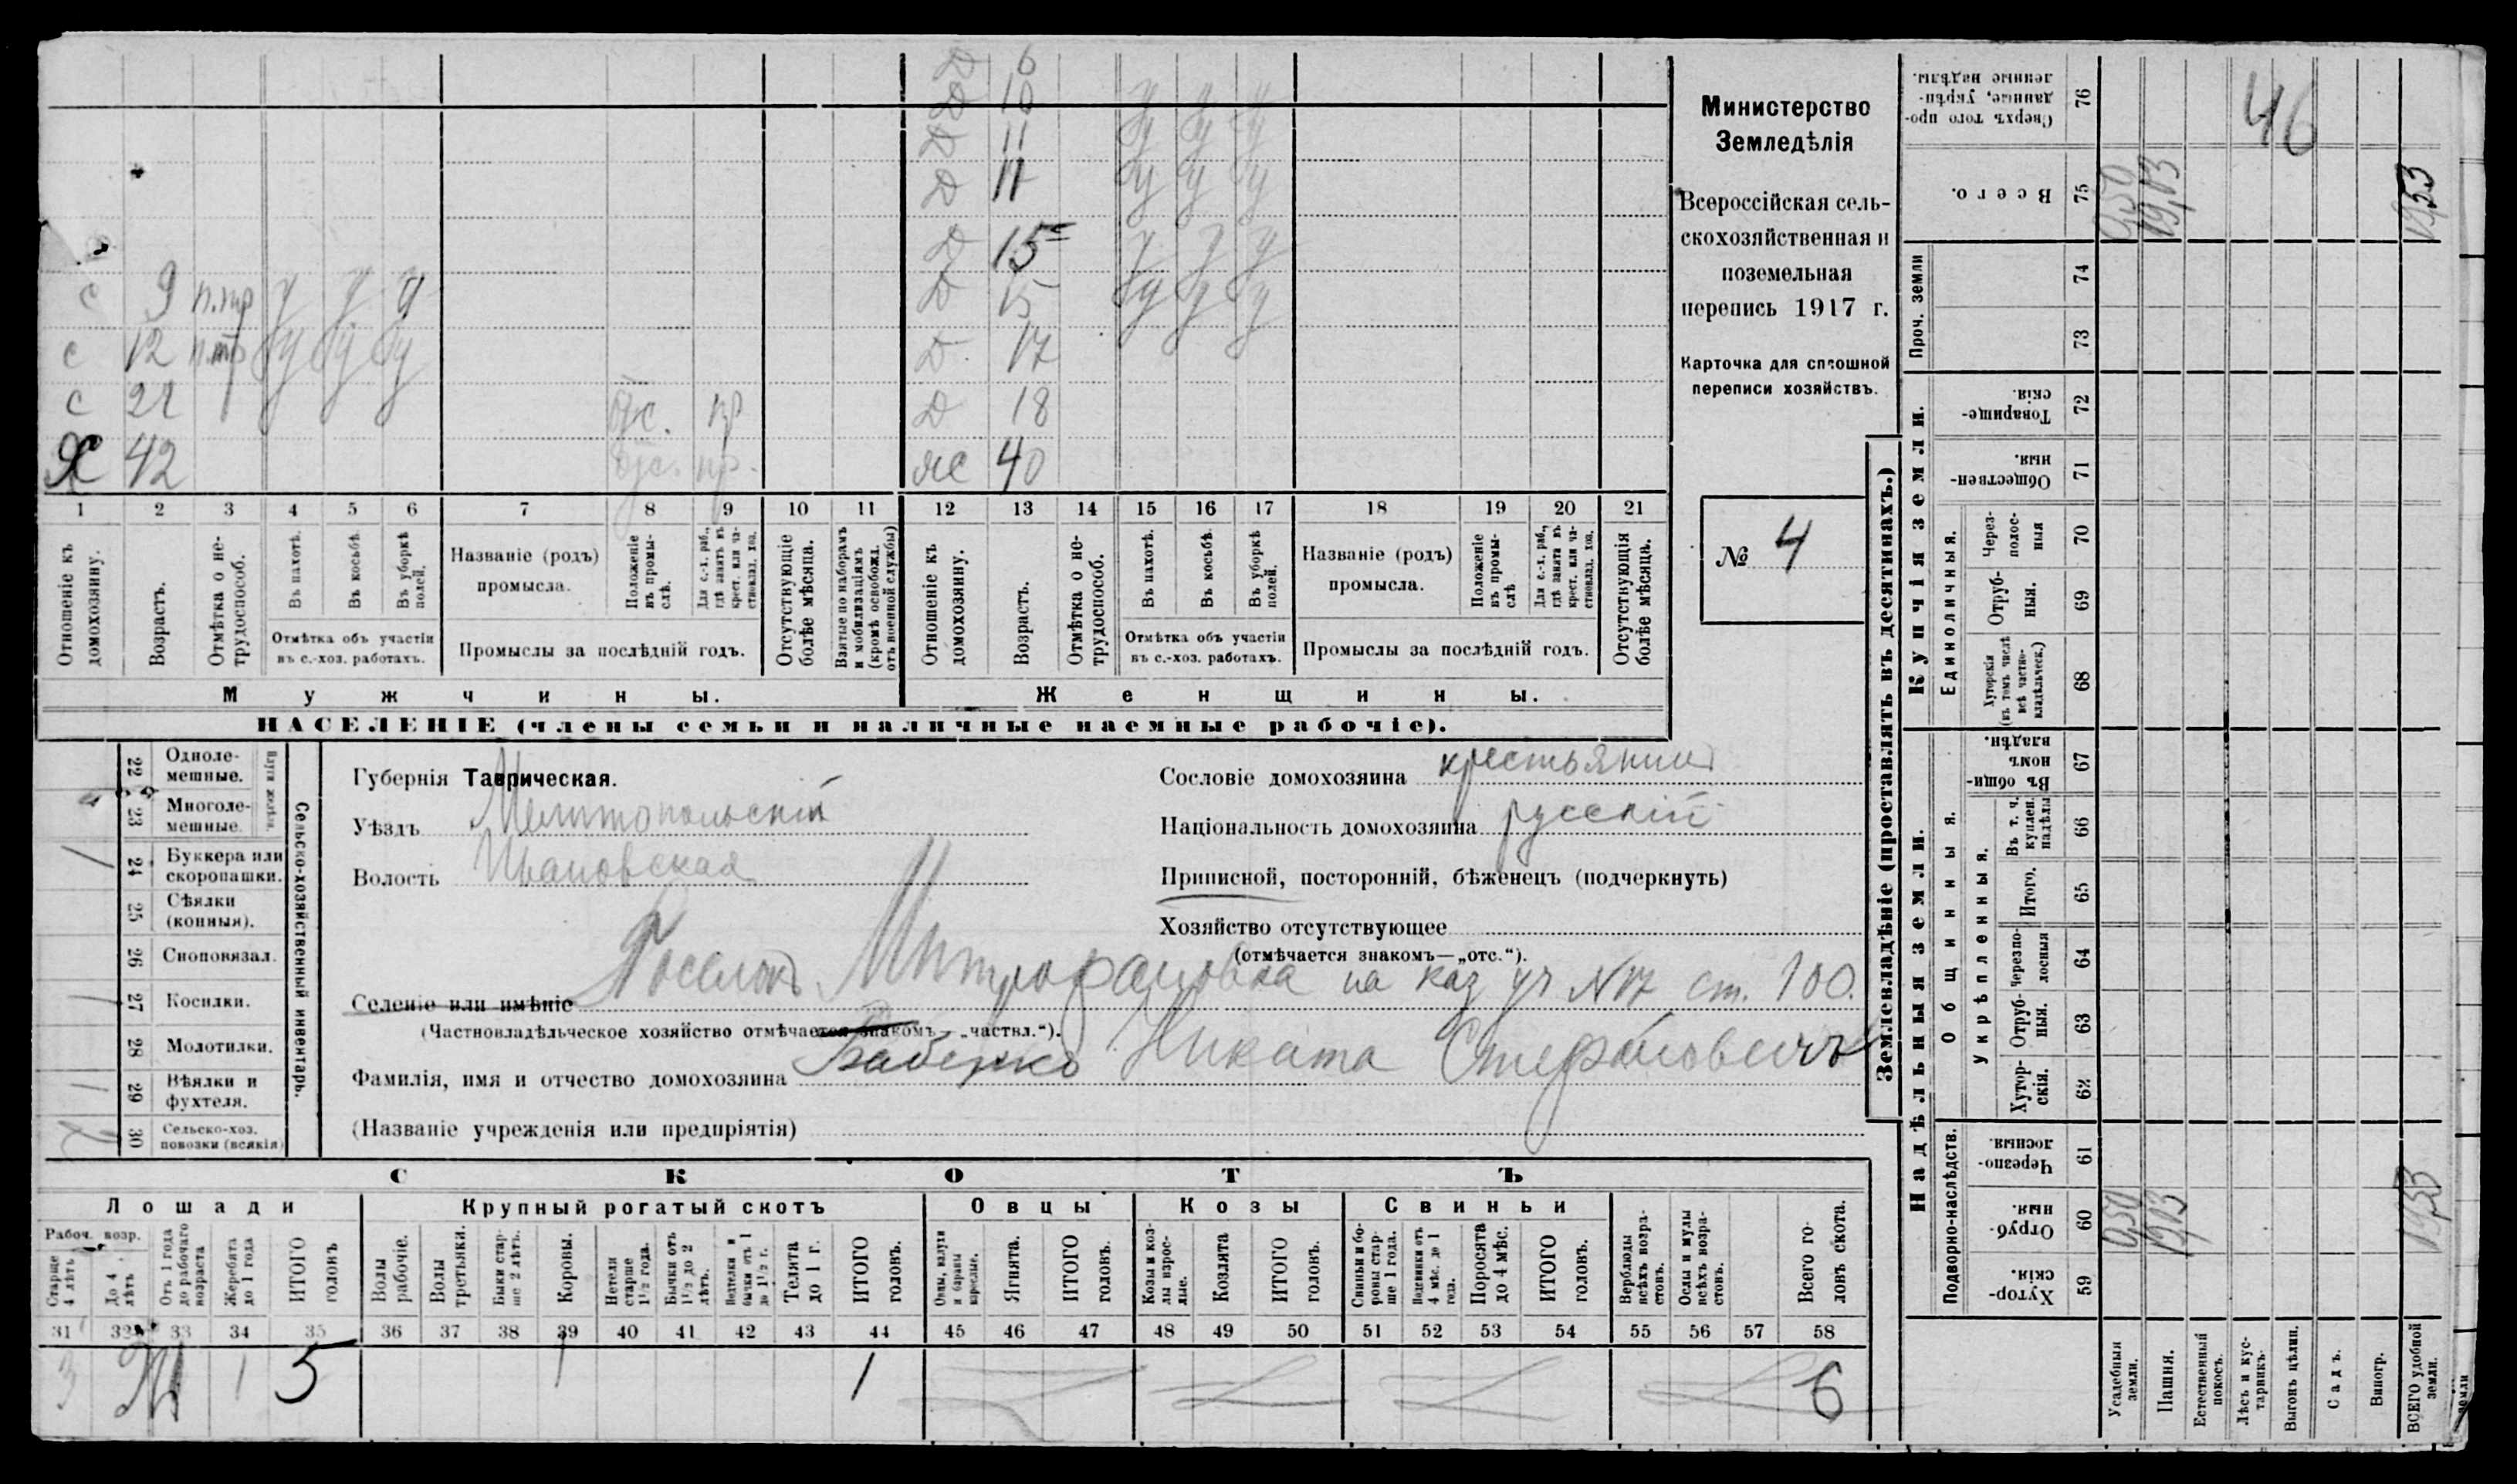 Д 6
Д 10 у у у
Д 11 у у у
Д 11 у у у
Д 15 у у у
с 9 п.тр у у у Д 15 у у у
с 12 п.тр у у у Д 17
с 21 пр Д 18
Х 42 пр. же 40
1 2 3 4 5 6 7 8 9 10 11 12 13 14 15 16 17 18 19 20 21
Отношеніе къ домохозяину.
Возрастъ.
Отмѣтка о не-трудоспособ.
Въ пахотѣ.
Въ косьбѣ.
Въ уборкѣ полей.
Отмѣтка объ участіи
въ с.-хоз. работахъ.
Названіе (родъ)
промысла.
Положеніе въ промы-слѣ.
Для с.-х. раб., гдѣ занятъ въ крест. или ча-стновлад. хоз.
Промыслы за послѣдній годъ.
Отсутствующіе болѣе мѣсяца.
Взятые по наборамъ и мобилизаціямъ (кромѣ освобожд. отъ военной службы)
Отношеніе къ домохозяину.
Возрастъ.
Отмѣтка о не-трудоспособ.
Въ пахотѣ.
Въ косьбѣ.
Въ уборкѣ полей.
Отмѣтка объ участіи
въ с.-хоз. работахъ.
Названіе (родъ)
промысла.
Положеніе въ промы-слѣ
Для с.-х. раб., гдѣ занятъ въ крест. или ча-стновлад. хоз.
Промыслы за послѣдній годъ.
Отсутствующія болѣе мѣсяца.
Мужчины. Женщины.
НАСЕЛЕНІЕ (члены семьи и наличные наемные рабочіе).
Министерство
Земледѣлія
Всероссійская сель-
скохозяйственная и
поземельная
перепись 1917 г.
Карточка для сплошной
переписи хозяйствъ.
№ 4
22 Одноле-мешные.
23 Многоле-мешные.
24 Буккера или скоропашки. 1
25 Сѣялки (конныя).
26 Сноповязал.
27 Косилки. 1
28 Молотилки.
29 Вѣялки и фухтеля. 1
30 Сельско-хоз. повозки (всякія)
Сельско-хозяйственный инвентарь.
Губернія Таврическая.
Уѣздъ Мелитопольскій
Волость Ивановская
Сословіе домохозяина крестьянин
Національность домохозяина русскій
Приписной, посторонній, бѣженецъ (подчеркнуть)
Хозяйство отсутствующее
(отмѣчается знакомъ—„отс.“).
Селеніе или имѣніе Поселокъ Митрофановка на каз уч N17 ст. 100.
(Частновладѣльческое хозяйство отмѣчается знакомъ—„частвл.“).
Фамилія, имя и отчество домохозяина Бабенко Никита Стефановичъ
(Названіе учрежденія или предпріятія)
СКОТЪ
Лошади Крупный рогатый скотъ Овцы Козы Свиньи
Рабоч. возр.
Старше 4 лѣтъ
До 4 лѣтъ
Отъ 1 года до рабочаго возраста
Жеребята до 1 года
ИТОГО головъ
Волы рабочіе.
Волы третьяки.
Быки стар-ше 2 лѣтъ.
Коровы.
Нетели старше 1½ года.
Бычки отъ 1½ до 2 лѣтъ.
Нетелки и бычки отъ 1 до 1½ г.
Телята до 1 г.
ИТОГО головъ.
Овцы, валухи и бараны взрослые.
Ягнята.
ИТОГО головъ.
Козы и коз-лы взрос-лые.
Козлята
ИТОГО головъ.
Свиньи и бо-ровы стар-ше 1 года.
Подсвинки отъ 4 мѣс. до 1 года.
Поросята до 4 мѣс.
ИТОГО головъ.
Верблюды всѣхъ возра-стовъ.
Ослы и мулы всѣхъ возра-стовъ.
Всего го-ловъ скота.
31 32 33 34 35 36 37 38 39 40 41 42 43 44 45 46 47 48 49 50 51 52 53 54 55 56 57 58
3 1 5 1 1 6
Землевладѣніе (проставлять въ десятинахъ.)
Купчія земли.
Надѣльныя земли.
Сверхъ того про-данные, укрѣп-ленные надѣлы. 76 46
Всего. 75 050 1903 1953
Проч. земли 74
73
Товарище-скія. 72
Обществен-ныя. 71
Единоличныя.
Через-полос-ныя 70
Отруб-ныя. 69
Хуторскія (въ томъ числѣ всѣ частно-владѣльческ.) 68
Въ общи-номъ владѣн. 67
Общинныя.
Укрѣпленныя.
Въ т. ч. куплен. надѣлы 66
Итого. 65
Черезпо-лосныя 64
Отруб-ныя. 63
Хутор-скія. 62
Подворно-наслѣдств.
Черезпо-лосныя. 61
Отруб-ныя. 60 050 1903 1953
Хутор-скія. 59
Усадебныя земли.
Пашня.
Естественный покосъ.
Лѣсъ и кус-тарникъ.
Выгонъ цѣлин.
Садъ.
Виногр.
ВСЕГО удобной земли.
земли